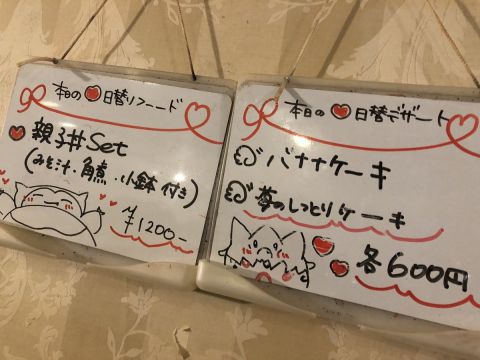 本日の♥日替りフード
♥ 親子丼Set
(みそ汁.角煮.小鉢付き)
¥1200-
本日の♥日替デザート
バナナケーキ
苺のしっとりケーキ
各600円